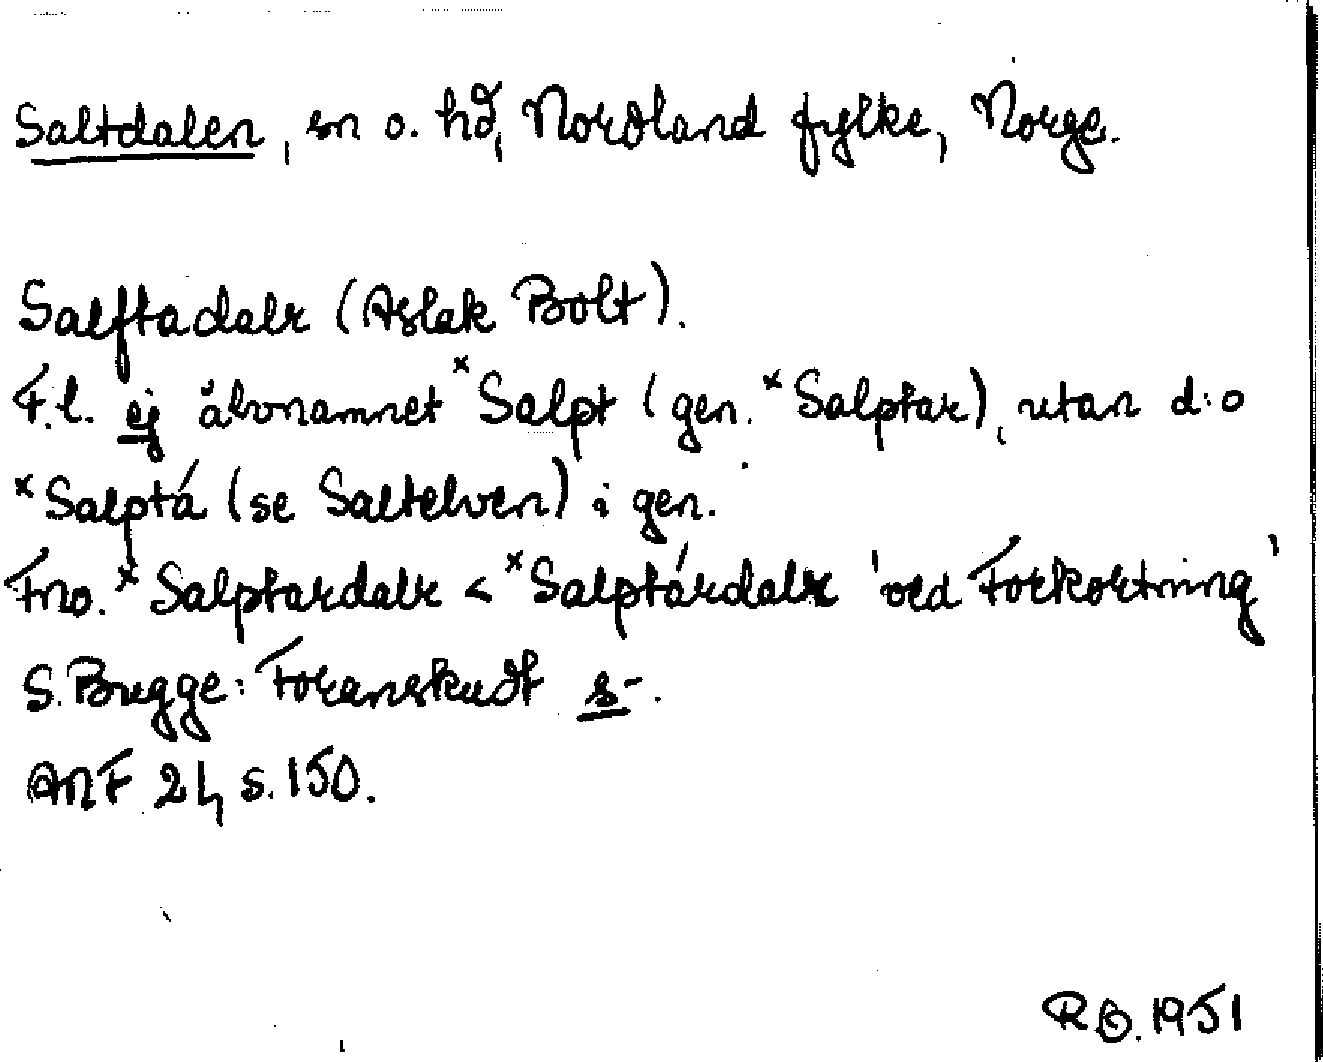 Saltdalen, sn o. hd, Nordland fylke, Norge.
Salftadalr (Aslak Bolt).
F.l. ej älvnamnet *Salpt (gen. *Salptar), utan d:o
*Salptá (se Saltelven) i gen.
Fno. *Salptardalr < *Salptárdalr 'ved Forkortning'
S. Bugge: Foranskudt s-.
ANF 21, s. 150.
1951